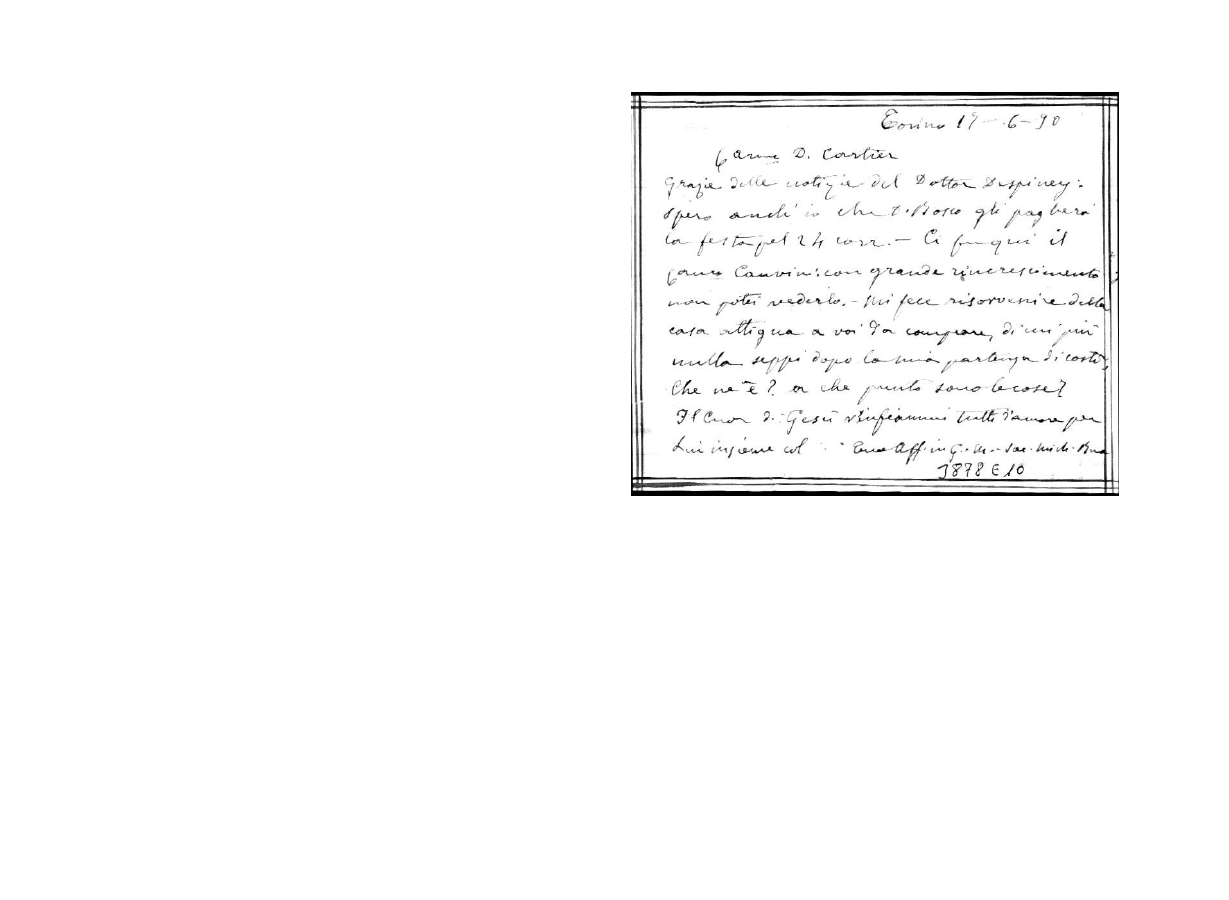 Torino 19-6-90
Carmo D. Cartier
Grazie delle notizie del Dottor Despiney:
Spero anch'io che D. Bosco gli pagherà
la festa pel 24 corr. - Ci fu qui il
Cauvin: con grande rincrescimento
non potei vederlo. - Mi fece risovvenire della
casa attigua a voi da comprare, di cui più
nulla seppi dopo la mia partenza di costì;
Che ne è? a che punto sono le cose?
Il Cuor di Gesù v'infiammi tutti d'amore per
Lui insieme col Aff. in G. M. Sac. Mich. Rua
3878 E 10